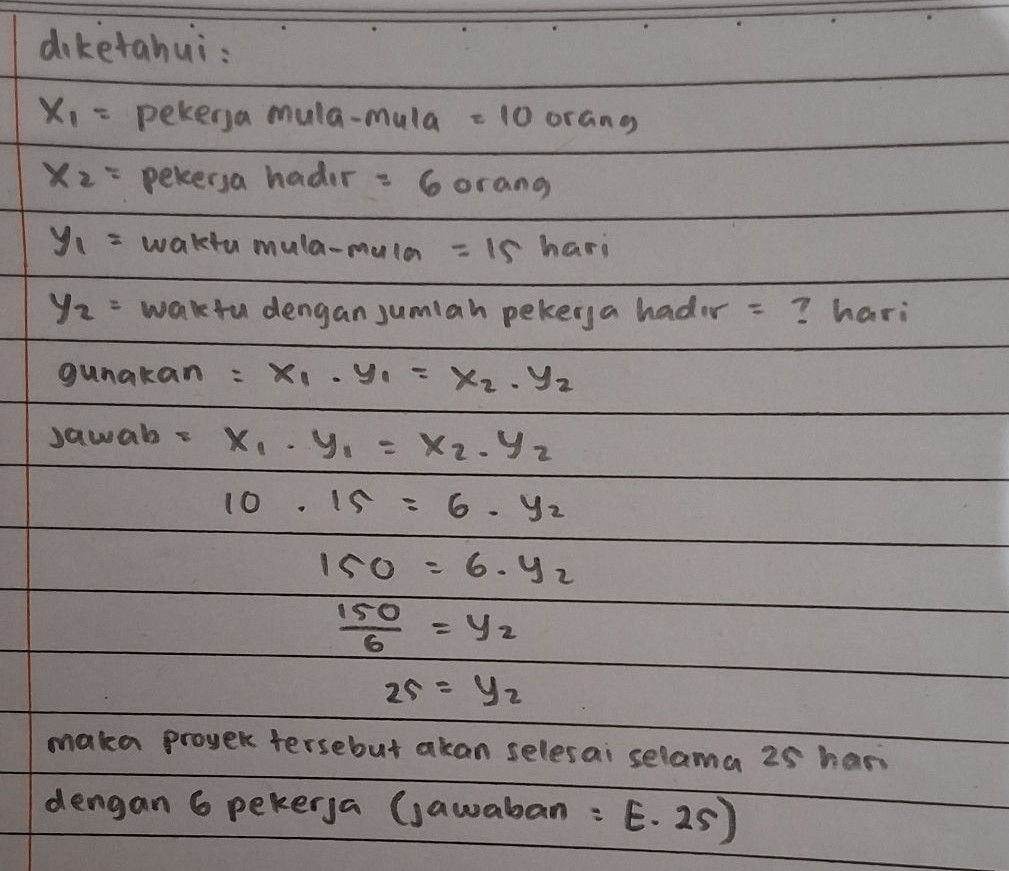 diketahui:
X₁ = pekerja mula-mula = 10 orang
X₂ = pekerja hadir = 6 orang
y₁ = waktu mula-mula = 15 hari
y₂ = waktu dengan jumlah pekerja hadir = ? hari
gunakan : X₁ . y₁ = X₂ . y₂
jawab = X₁ . y₁ = X₂ . y₂
10 . 15 = 6 . y₂
150 = 6 . y₂
150/6 = y₂
25 = y₂
maka proyek tersebut akan selesai selama 25 hari
dengan 6 pekerja (jawaban : E. 25)